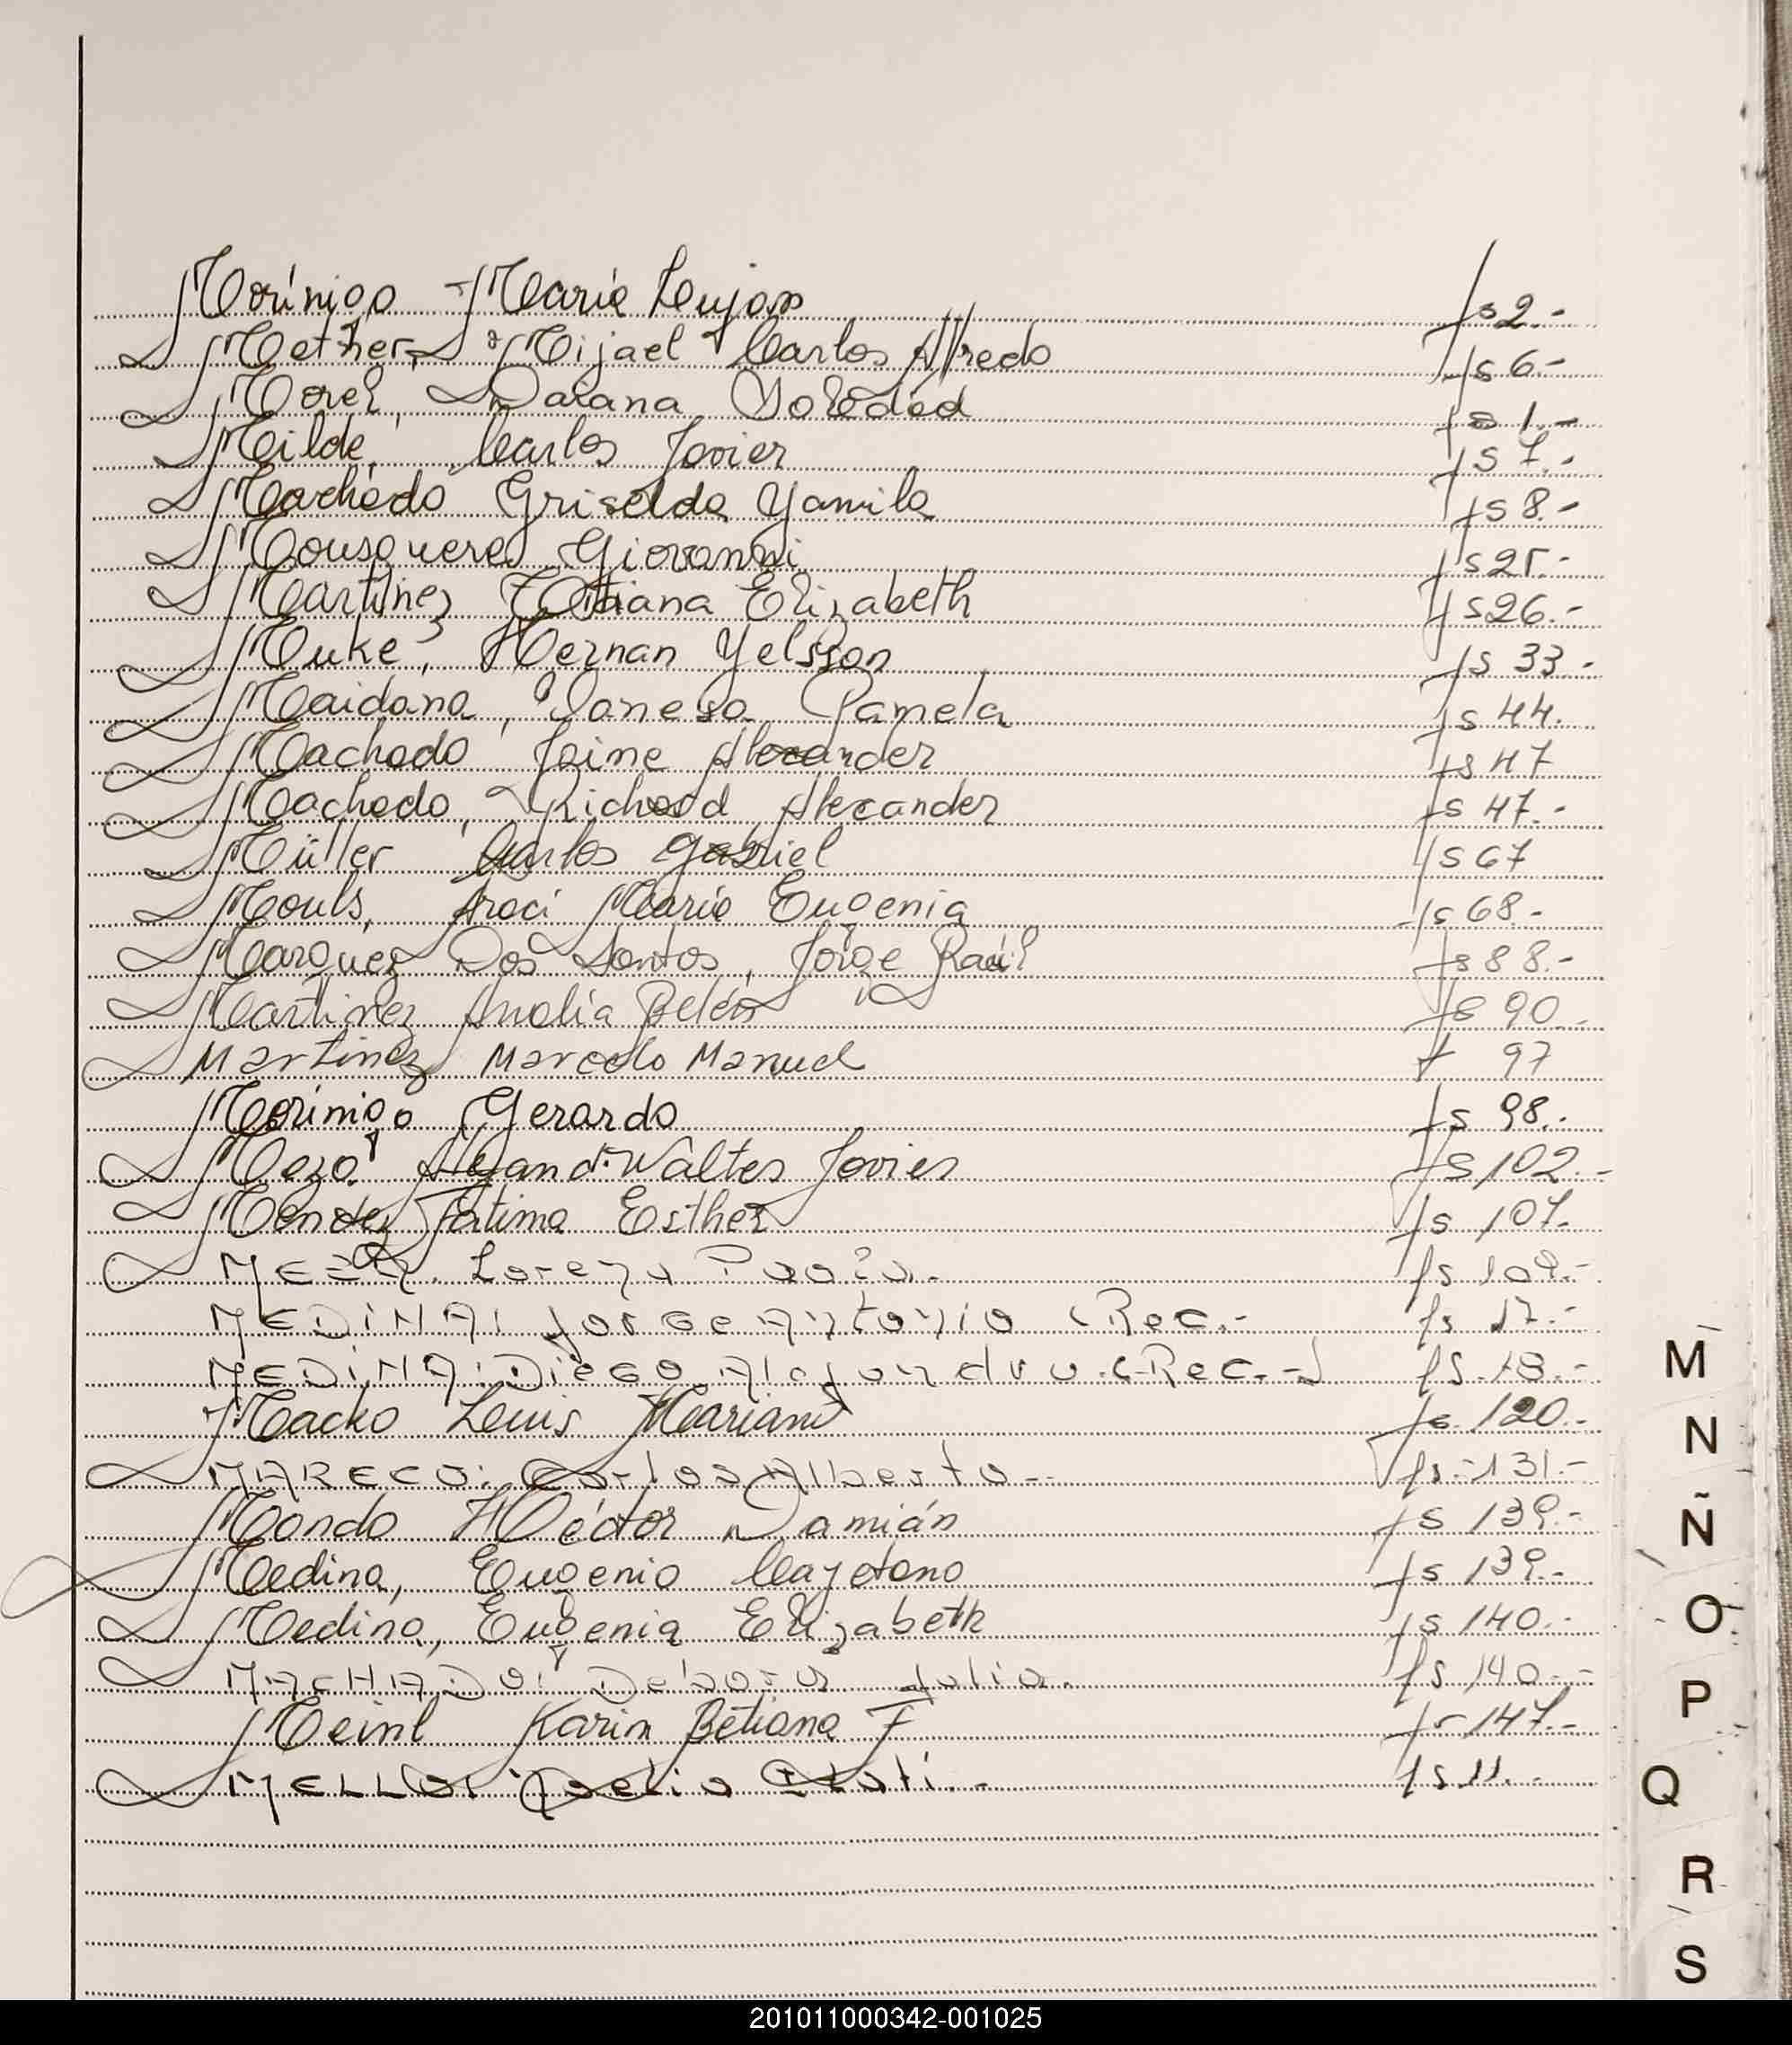 Morínigo María Lujan fs 2.-
Mether, Mijael Carlos Alfredo fs 6.-
Morel, Daiana Soledad fs 1.-
Milde, Carlos Javier fs 7.-
Machado Griselda Yamila fs 8.-
Mousquere Giovanni fs 25.-
Martinez Tatiana Elizabeth fs 26.-
Muke, Hernan Yelsson fs 33.-
Maidana, Vanesa Pamela fs 44.
Machado Jaime Alexander fs 47
Machado, Richard Alexander fs 47.-
Müller Carlos Gabriel fs 67
Mouls, Araci María Eugenia fs 68.-
Marquez Dos Santos, Jorge Raúl fs 88.-
Martinez Analía Belén fs 90.-
Martinez Marcelo Manuel f 97
Morínigo Gerardo fs 98.-
Meza Walter Javier fs 102.-
Mendez Fatima Esther fs 107.-
MEZA. Lorena Paola.- fs 109.-
MEDINA: Jorge Antonio (Rec.- fs 17.-
MEDINA: Diego Alejandro (Rec.-) fs. 18.-
Macko Luis Mariano fs 120.-
MARECO: Carlos Alberto.- fs.-131.-
Mondo Héctor Damián fs 139.-
Medina, Eugenio Cayetano fs 139.-
Medina, Eugenia Elizabeth fs 140.-
MACHADO: Débora Julia. fs 140.-
Meinl Karin Betiana F fs 147.-
MELLO: fs 11.-
M
N
Ñ
O
P
Q
R
S
201011000342-001025